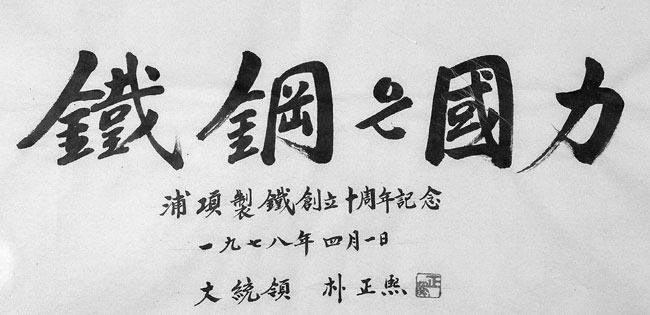 鐵鋼은國力
浦項製鐵創立十周年記念
一九七八年四月一日
大統領 朴正熙